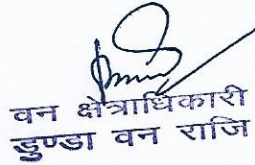 वन क्षेत्राधिकारी
डुण्डा वन राजि